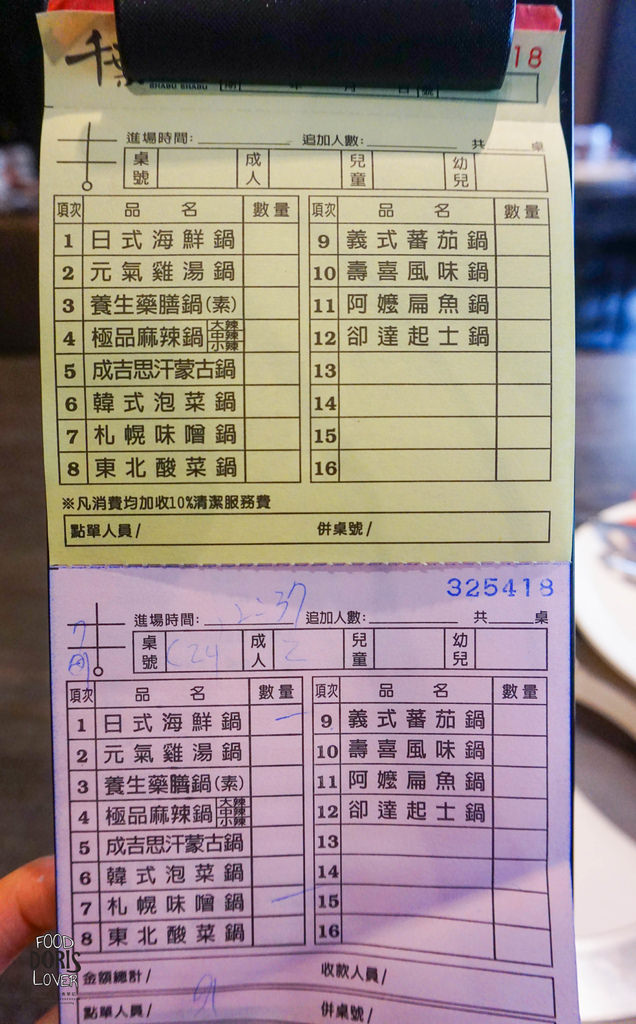 千葉
SHABU SHABU 年 月 日 號 18
進場時間: 追加人數: 共 桌
桌號 成人 兒童 幼兒
項次 品 名 數量 項次 品 名 數量
1 日式海鮮鍋 9 義式蕃茄鍋
2 元氣雞湯鍋 10 壽喜風味鍋
3 養生藥膳鍋(素) 11 阿嬤扁魚鍋
4 極品麻辣鍋 大辣 中辣 小辣 12 卻達起士鍋
5 成吉思汗蒙古鍋 13
6 韓式泡菜鍋 14
7 札幌味噌鍋 15
8 東北酸菜鍋 16
※凡消費均加收10%清潔服務費
點單人員/ 併桌號/
325418
進場時間: 12:37 追加人數: 共 桌
桌號 C24 成人 2 兒童 幼兒
項次 品 名 數量 項次 品 名 數量
1 日式海鮮鍋 一 9 義式蕃茄鍋
2 元氣雞湯鍋 10 壽喜風味鍋
3 養生藥膳鍋(素) 11 阿嬤扁魚鍋
4 極品麻辣鍋 大辣 中辣 小辣 12 卻達起士鍋
5 成吉思汗蒙古鍋 13
6 韓式泡菜鍋 14
7 札幌味噌鍋 一 15
8 東北酸菜鍋 16
金額總計/ 收款人員/
點單人員/ 併桌號/
FOOD
DORIS
LOVER